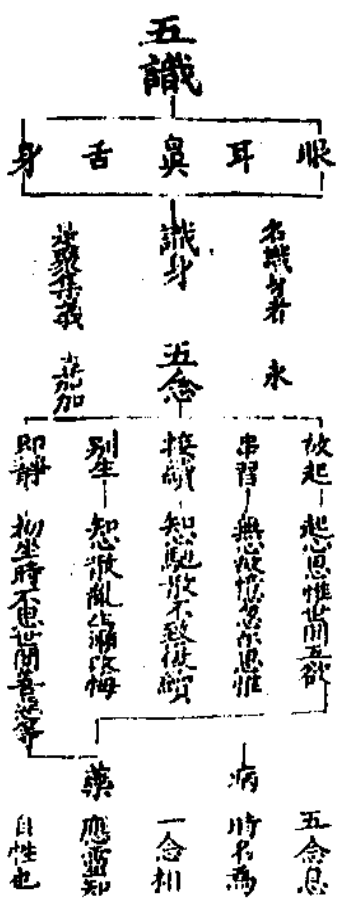 五識
眼
耳
鼻
舌
身
識身
名識身者
聚集義
永
五念
故起
起心思惟世間五欲
串習
無心故憶忽爾思惟
接續
知心馳散不致
別生
知心散亂 改悔
即靜
初坐時不思世間善惡等
病
藥
五念息
時名為
一念相
應靈知
自性也